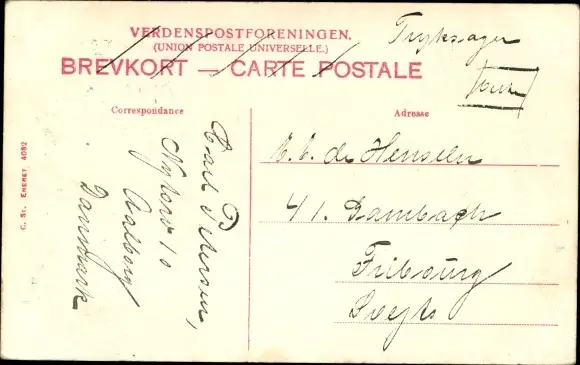 VERDENSPOSTFORENINGEN.
(UNION POSTALE UNIVERSELLE.)
BREVKORT — CARTE POSTALE
Tryksager
Correspondance
Adresse
Carl Petersen,
Nytorv 10
Aalborg
Danmark
de Henselen
41. Dambach
Fribourg
C. St. Eneret 4082